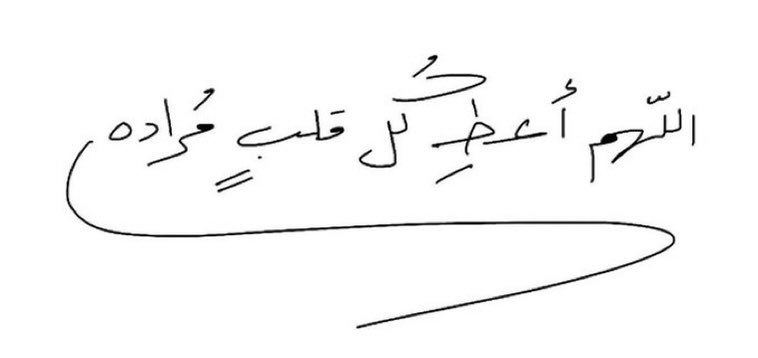 اللّهم أعطِ كُل قلبٍ مُراده